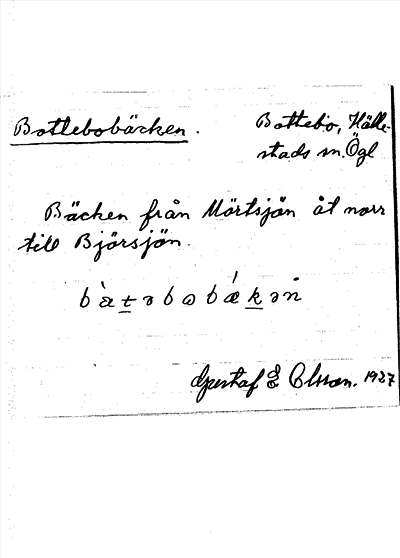 Bottebobäcken.
Bottebo, Hälle-
stads sn. Ögl
Bäcken från Mörtsjön åt norr
till Björsjön.
b à t ə b ω b ǽ k ə n
Gustaf E Olsson. 1937